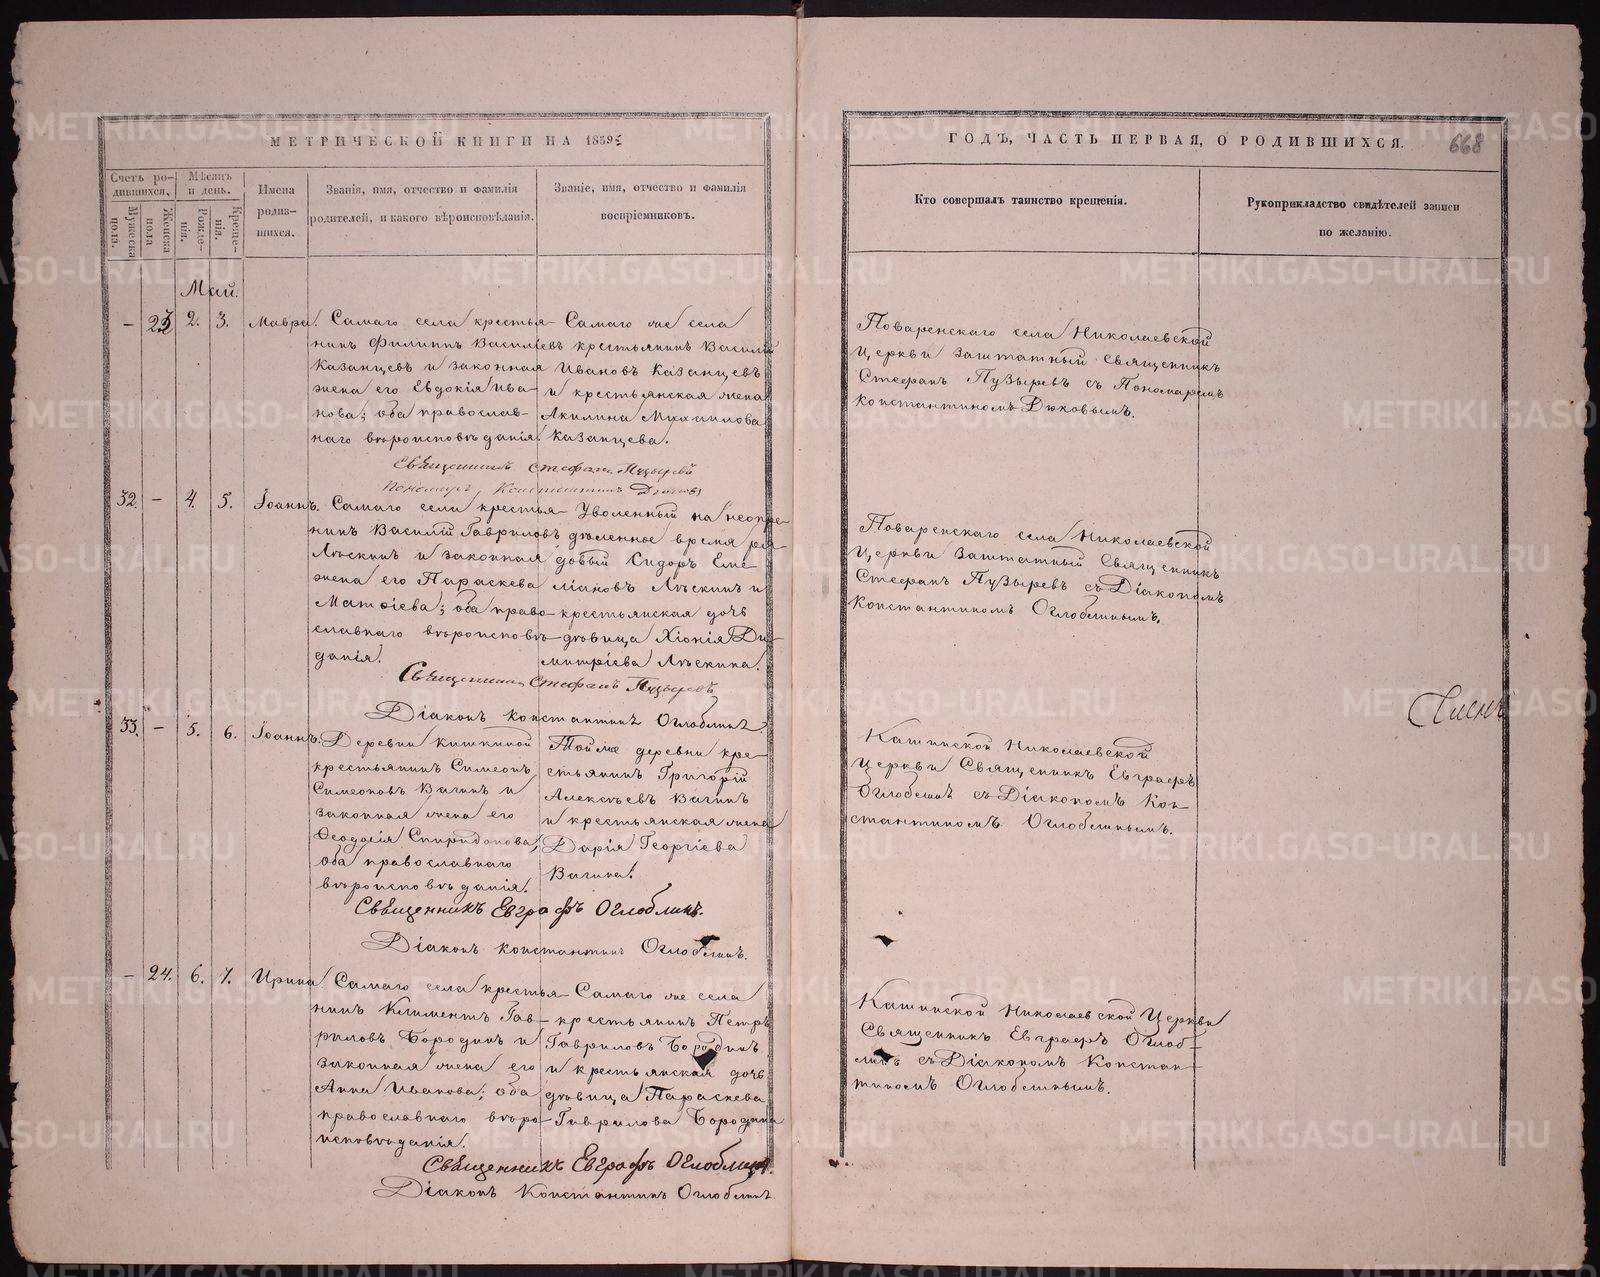 МЕТРИЧЕСКОЙ КНИГИ НА 1859
Счетъ ро-
дившихся.
Мужеска
пола.
Женска
пола
Мѣсяцъ
и день.
Рожде-
нія.
Креще-
нія.
Имена
родив-
шихся.
Званія, имя, отчество и фамилія
родителей, и какого вѣроисповѣданія.
Званіе, имя, отчество и фамилія
воспріемниковъ.
Май.
– 23 2. 3. Мавра.
Самаго села крестья-
нинъ Филиппъ Васильевъ
Казанцевъ и законная
жена его Евдокія Ива-
нова; оба православ-
наго вѣроисповѣданія.
Самаго же села
крестьянинъ Василій
Ивановъ Казанцевъ
и крестьянская жена
Акилина Михаилова
Казанцева.
Священникъ Стефанъ Пузыревъ
Пономарь Константинъ Дюковъ
32. – 4. 5. Іоаннъ.
Самаго села крестья-
нинъ Василій Гавриловъ
Лѣскинъ и законная
жена его Параскева
Матѳіева; оба право-
славнаго вѣроисповѣ-
данія.
Уволенный на неопре-
дѣленное время ря-
довый Сидоръ Еме-
ліановъ Лѣскинъ и
крестьянская дочь
дѣвица Хіонія Ди-
митріева Лѣскина.
Священникъ Стефанъ Пузыревъ
Діаконъ Константинъ Оглоблинъ.
33. – 5. 6. Іоаннъ.
Деревни Кишкиной
крестьянинъ Симеонъ
Симеоновъ Вагинъ и
законная жена его
Ѳеодосія Спиридонова;
оба православнаго
вѣроисповѣданія.
Той же деревни кре-
стьянинъ Григорій
Алексѣевъ Вагинъ
и крестьянская жена
Дарія Георгіева
Вагина.
Священникъ Евграфъ Оглоблинъ.
Діаконъ Константинъ Оглоблинъ.
– 24. 6. 7. Ирина.
Самаго села крестья-
нинъ Климентъ Гав-
риловъ Бородинъ и
законная жена его
Анна Иванова; оба
православнаго вѣро-
исповѣданія.
Самаго же села
крестьянинъ Петръ
Гавриловъ Бородинъ
и крестьянская дочь
дѣвица Параскева
Гаврилова Бородина
Священникъ Евграфъ Оглоблинъ.
Діаконъ Константинъ Оглоблинъ
ГОДЪ, ЧАСТЬ ПЕРВАЯ, О РОДИВШИХСЯ.
668
Кто совершалъ таинство крещенія.
Рукоприкладство свидѣтелей записи
по желанію.
Поваренскаго села Николаевской
Церкви заштатный Священникъ
Стефанъ Пузыревъ съ Пономаремъ
Константиномъ Дюковымъ.
Поваренскаго села Николаевской
Церкви Заштатный Священникъ
Стефанъ Пузыревъ съ Діакономъ
Константиномъ Оглоблинымъ.
Членъ
Кашинской Николаевской
Церкви Священникъ Евграфъ
Оглоблинъ съ Діакономъ Кон-
стантиномъ Оглоблинымъ.
Кашинской Николаевской Церкви
Священникъ Евграфъ Оглоб-
линъ съ Діакономъ Констан-
тиномъ Оглоблинымъ.
METRIKI.GASO-URAL.RU